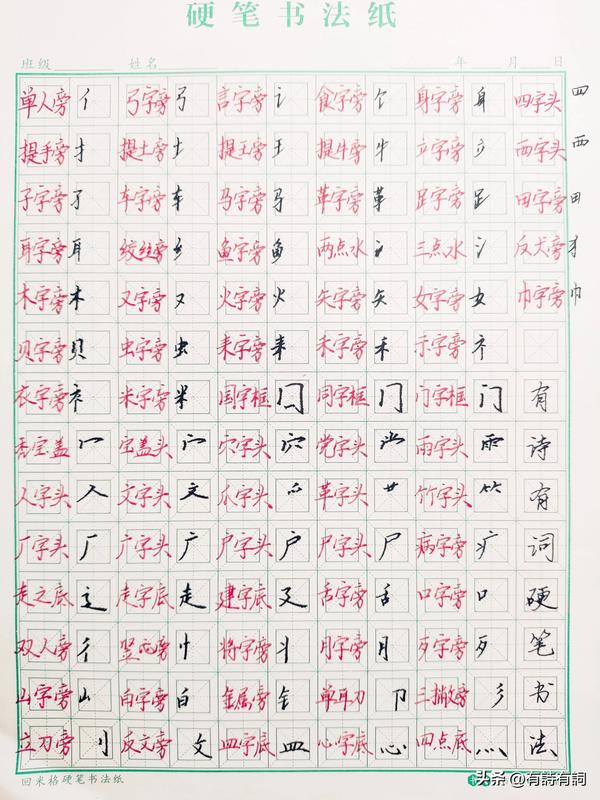 硬笔书法纸
班级 姓名 年 月 日
单人旁 亻 弓字旁 弓 言字旁 讠 食字旁 饣 身字旁 身 四字头 四
提手旁 扌 提土旁 土 提王旁 王 提牛旁 牛 立字旁 立 西字头 西
子字旁 子 车字旁 车 马字旁 马 革字旁 革 足字旁 足 田字旁 田
耳字旁 耳 绞丝旁 纟 鱼字旁 鱼 两点水 冫 三点水 氵 反犬旁 犭
木字旁 木 又字旁 又 火字旁 火 矢字旁 矢 女字旁 女 巾字旁 巾
贝字旁 贝 虫字旁 虫 耒字旁 耒 禾字旁 禾 示字旁 礻
衣字旁 衤 米字旁 米 国字框 囗 同字框 冂 门字框 门 有
秃宝盖 冖 宝盖头 宀 穴字头 穴 党字头 雨字头 雨 诗
人字头 人 文字头 文 爪字头 爫 革字头 廿 竹字头 ⺮ 有
厂字头 厂 广字头 广 户字头 户 尸字头 尸 病字旁 疒 词
走之底 辶 走字底 走 建字底 廴 舌字旁 舌 口字旁 口 硬
双人旁 彳 竖心旁 忄 将字旁 丬 月字旁 月 歹字旁 歹 笔
山字旁 山 白字旁 白 金属旁 钅 单耳刀 卩 三撇旁 彡 书
立刀旁 刂 反文旁 攵 皿字底 皿 心字底 心 四点底 灬 法
回米格硬笔书法纸
头条 @有詩有詞